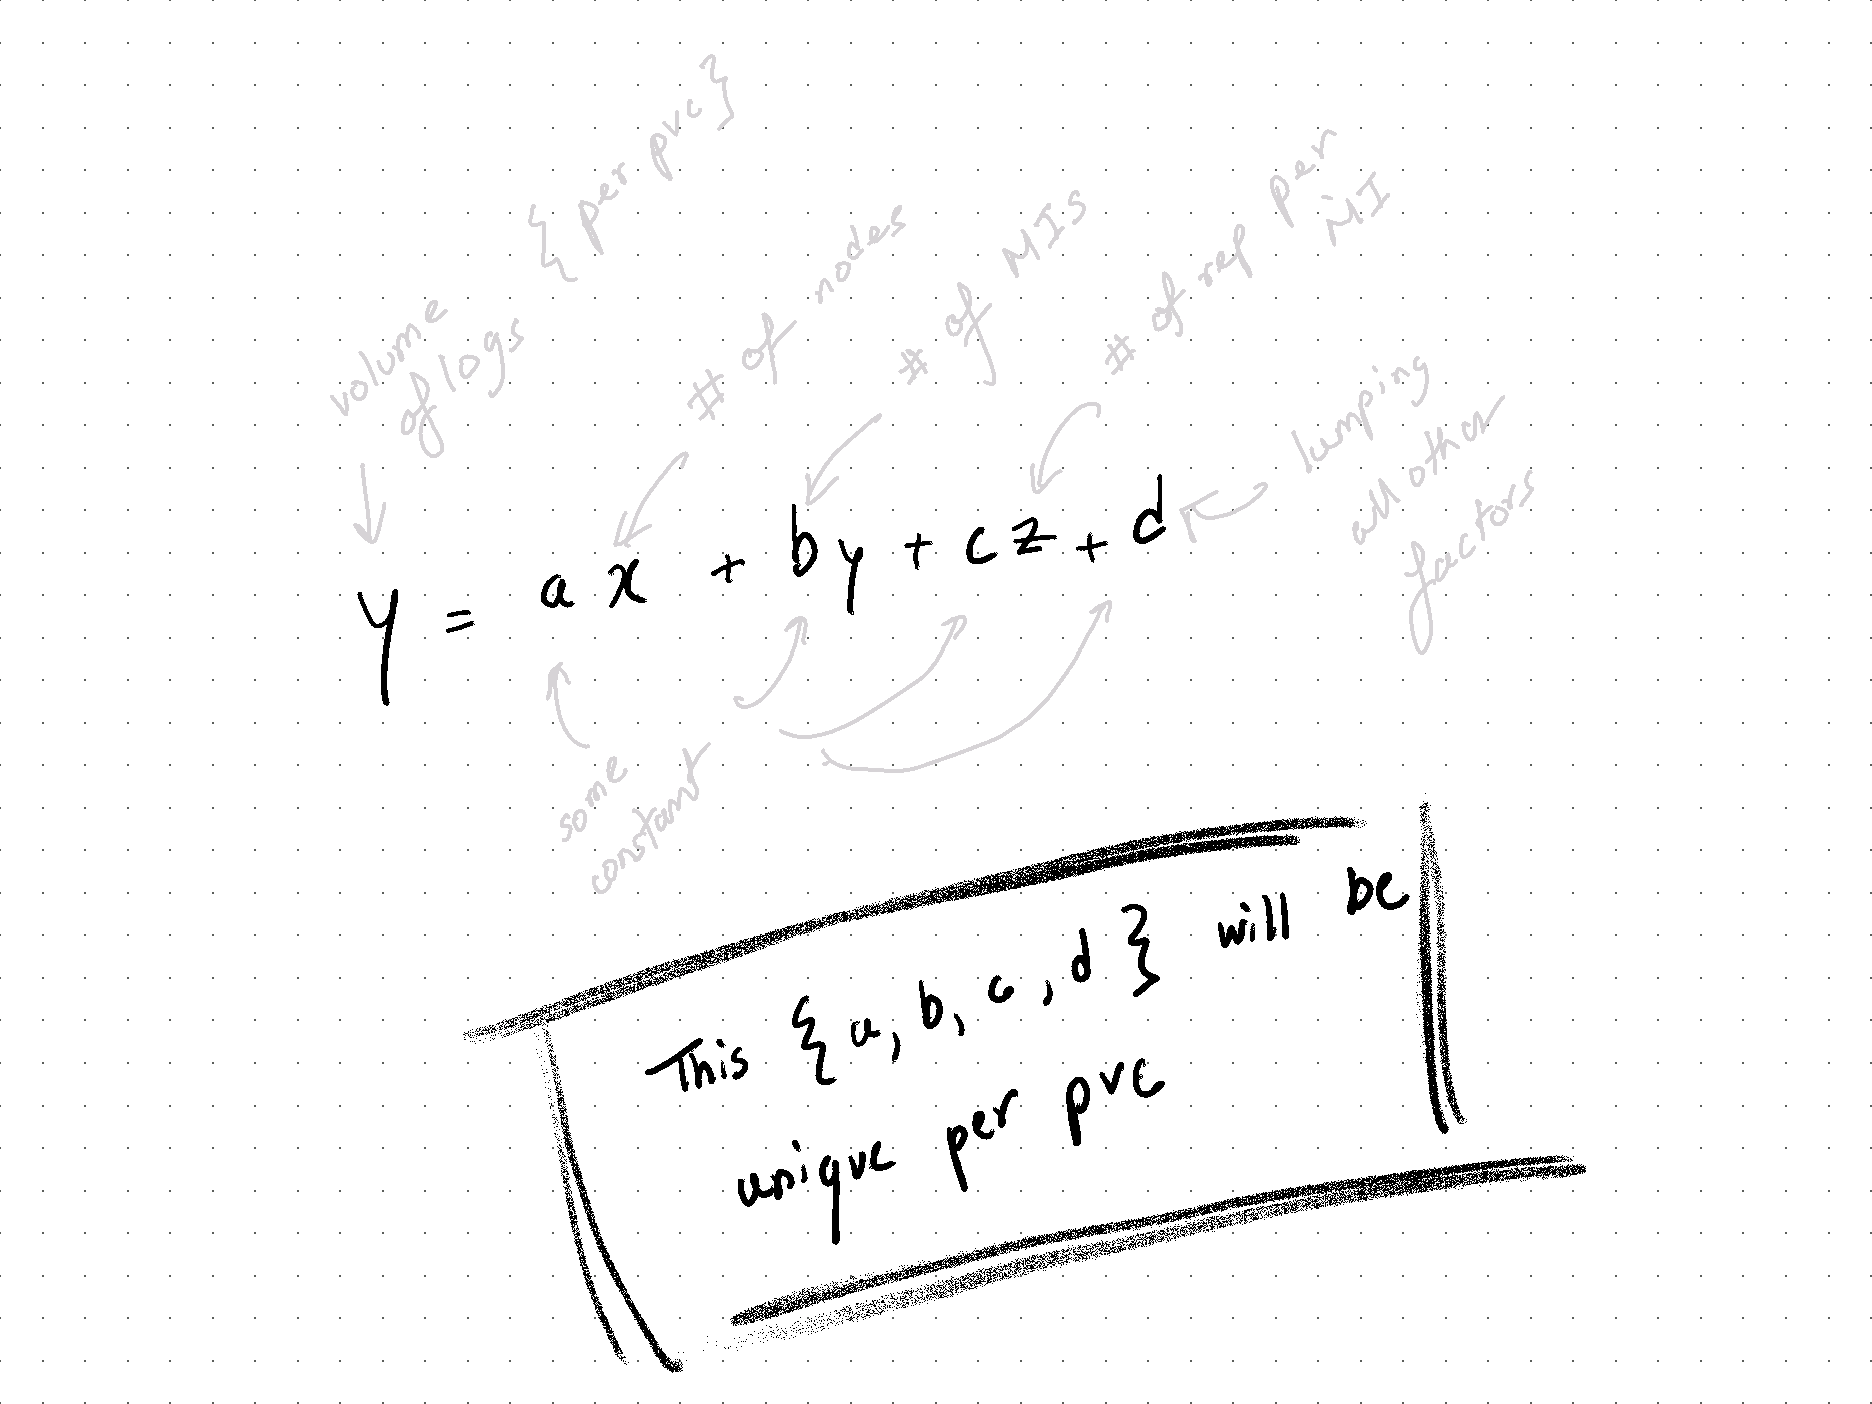 volume
of logs
{ per pvc }
# of nodes
# of MIs
# of rep per
MI
lumping
all other
factors
y = ax + by + cz + d
some
constant
This {a, b, c, d} will be
unique per pvc